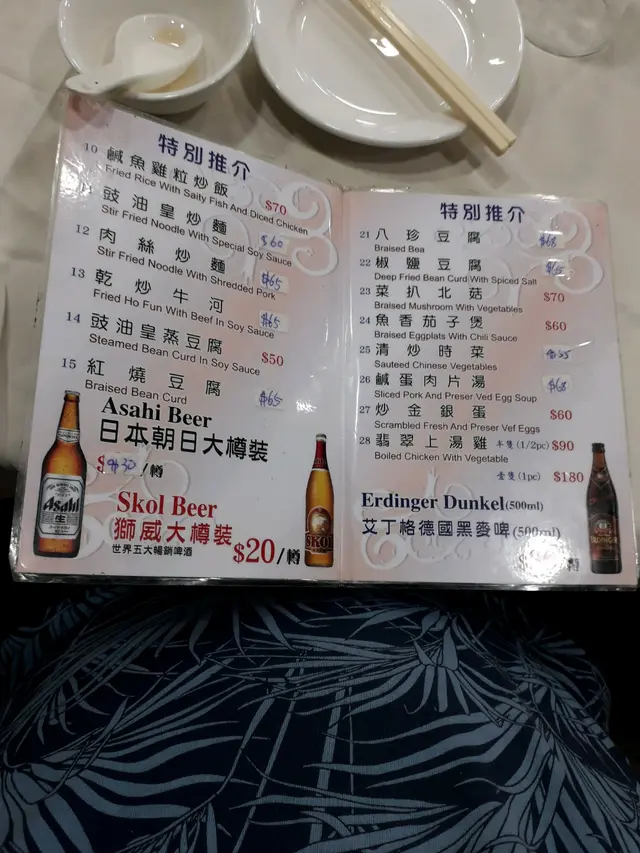 特別推介
10 鹹魚雞粒炒飯
Fried Rice With Saity Fish And Diced Chicken $70
豉油皇炒麵
Stir Fried Noodle With Special Soy Sauce $60
12 肉絲炒麵
Stir Fried Noodle With Shredded Pork $65
13 乾炒牛河
Fried Ho Fun With Beef In Soy Sauce $65
14 豉油皇蒸豆腐
Steamed Bean Curd In Soy Sauce $50
15 紅燒豆腐
Braised Bean Curd $65
Asahi Beer
日本朝日大樽裝
$30 /樽
Asahi
生
Skol Beer
獅威大樽裝
世界五大暢銷啤酒 $20/樽
SKOL
特別推介
21 八珍豆腐 $68
Braised Bea
22 椒鹽豆腐 $65
Deep Fried Bean Curd With Spiced Salt
23 菜扒北菇 $70
Braised Mushroom With Vegetables
24 魚香茄子煲 $60
Braised Eggplats With Chili Sauce
25 清炒時菜 $55
Sauteed Chinese Vegetables
26 鹹蛋肉片湯 $68
Sliced Pork And Preser Ved Egg Soup
27 炒金銀蛋 $60
Scrambled Fresh And Preser Vef Eggs
28 翡翠上湯雞 半隻(1/2pc) $90
Boiled Chicken With Vegetable
壹隻(1pc) $180
Erdinger Dunkel(500ml)
艾丁格德國黑麥啤(500ml)
樽